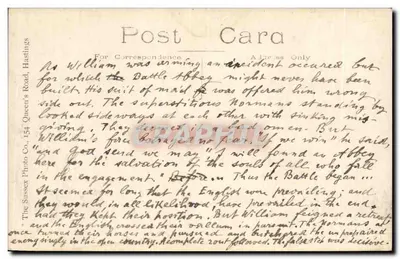 Post Card
For Correspondence
Address Only
The Sussex Photo Co., 154 Queen's Road, Hastings
As William was arming an incident occured but
for which the Battle Abbey might never have been
built. His suit of mail was offered him wrong
side out. The superstitious Normans standing by
looked sideways at each other with sinking mis-
giving. They omen. But
William's face "If we win" he said,
"and God send we may" I will found an Abbey
here for the salvation of the souls of all who fall
in the engagement." Thus the Battle began ...
It seemed for long that the English were prevailing; and
they would, in all likelihood have prevailed in the end
had they kept their position. But William feigned a retreat
and the English crossed their vallum in pursuit. The Normans at
once turned their horses and pursued and butchered the unprepared
enemy singly in the open country. A complete rout followed. The false step was decisive.